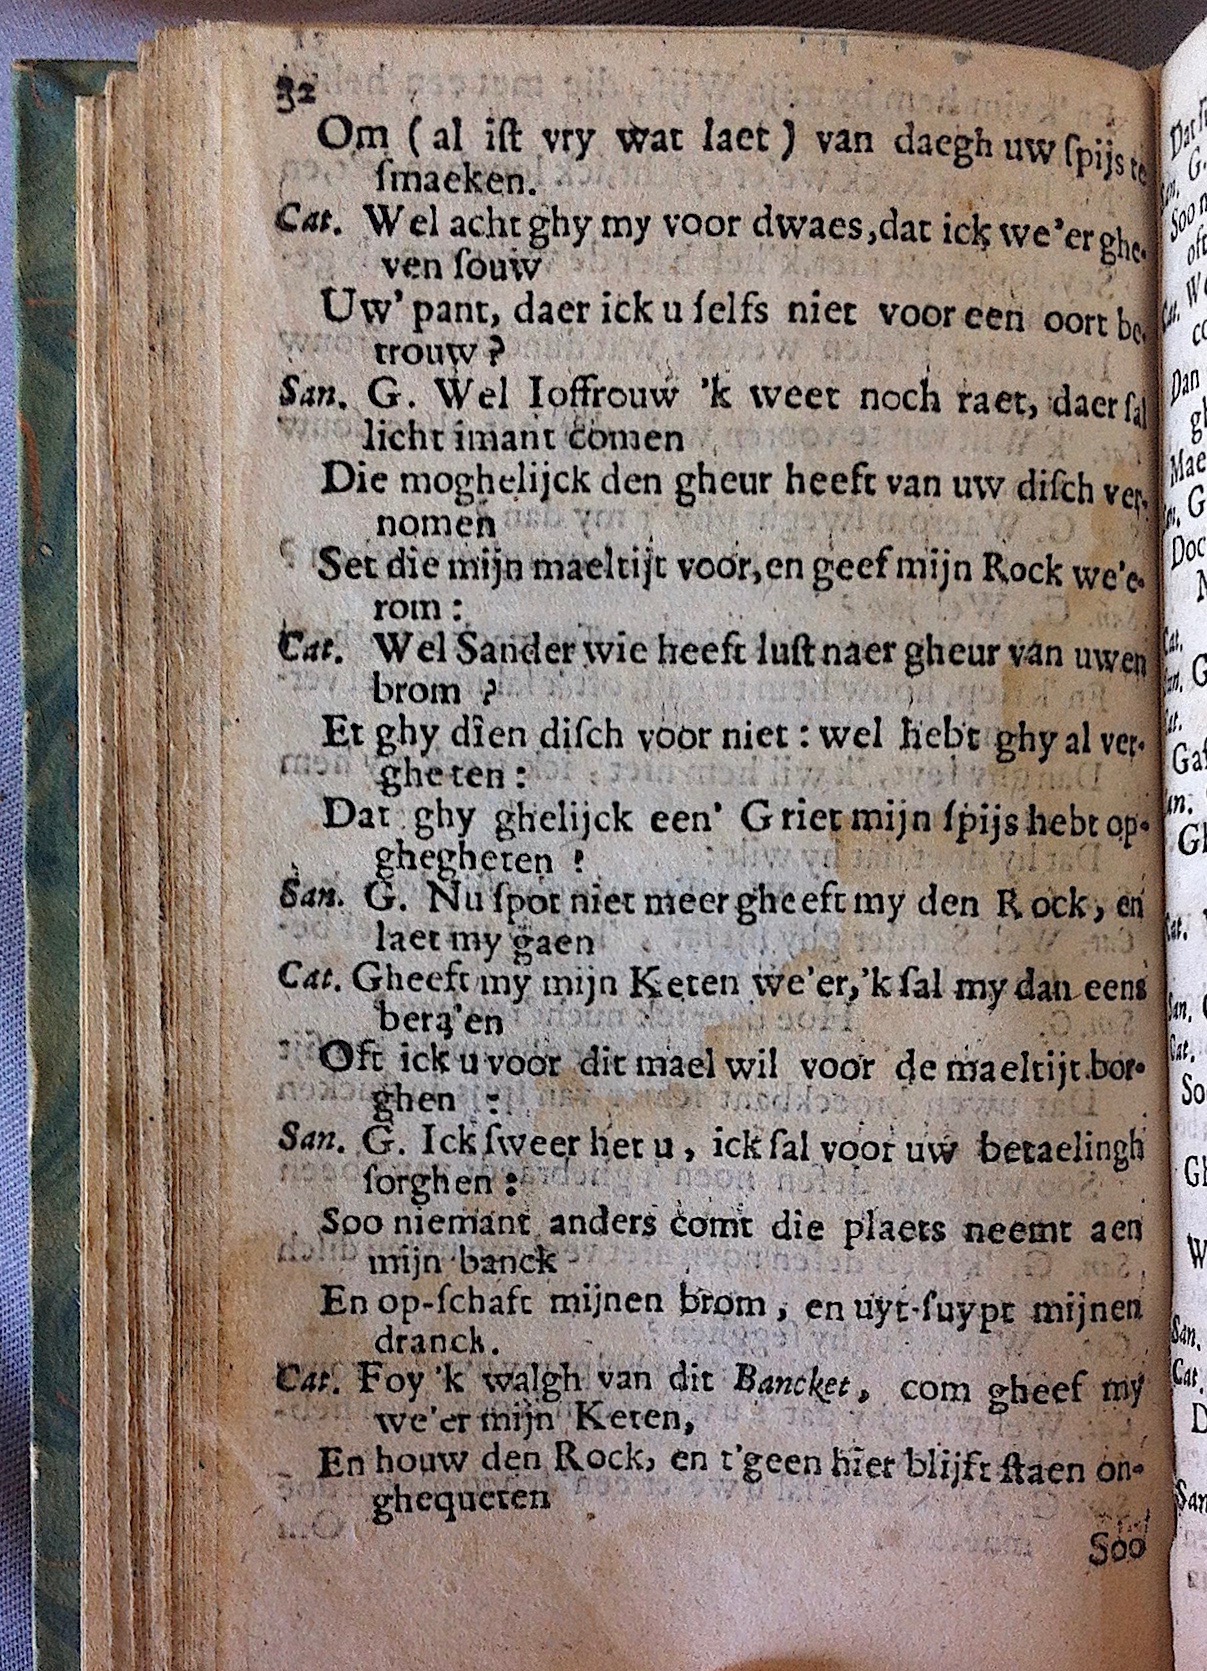 32
Om ( al iſt vry wat laet ) van daegh uw ſpijs te
ſmaeken.
Cat. Wel acht ghy my voor dwaes, dat ick we'er ghe-
ven ſouw
Uw' pant, daer ick u ſelfs niet voor een oort be-
trouw ?
San. G. Wel Ioffrouw 'k weet noch raet, daer ſal
licht imant comen
Die moghelijck den gheur heeft van uw diſch ver-
nomen
Set die mijn maeltijt voor, en geef mijn Rock we'e-
rom :
Cat. Wel Sander wie heeft luſt naer gheur van uwen
brom ?
Et ghy dien diſch voor niet : wel hebt ghy al ver-
gheten :
Dat ghy ghelijck een' Griet mijn ſpijs hebt op-
ghegheten !
San. G. Nu ſpot niet meer gheeft my den Rock, en
laet my gaen
Cat. Gheeft my mijn Keten we'er, 'k ſal my dan eens
bera'en
Oft ick u voor dit mael wil voor de maeltijt bor-
ghen :
San. G. Ick ſweer het u, ick ſal voor uw betaelingh
ſorghen :
Soo niemant anders comt die plaets neemt aen
mijn banck
En op-ſchaft mijnen brom, en uyt-ſuypt mijnen
dranck.
Cat. Foy 'k walgh van dit Bancket, com gheef my
we'er mijn Keten,
En houw den Rock, en t'geen hier blijft ſtaen on-
ghequeten
Soo